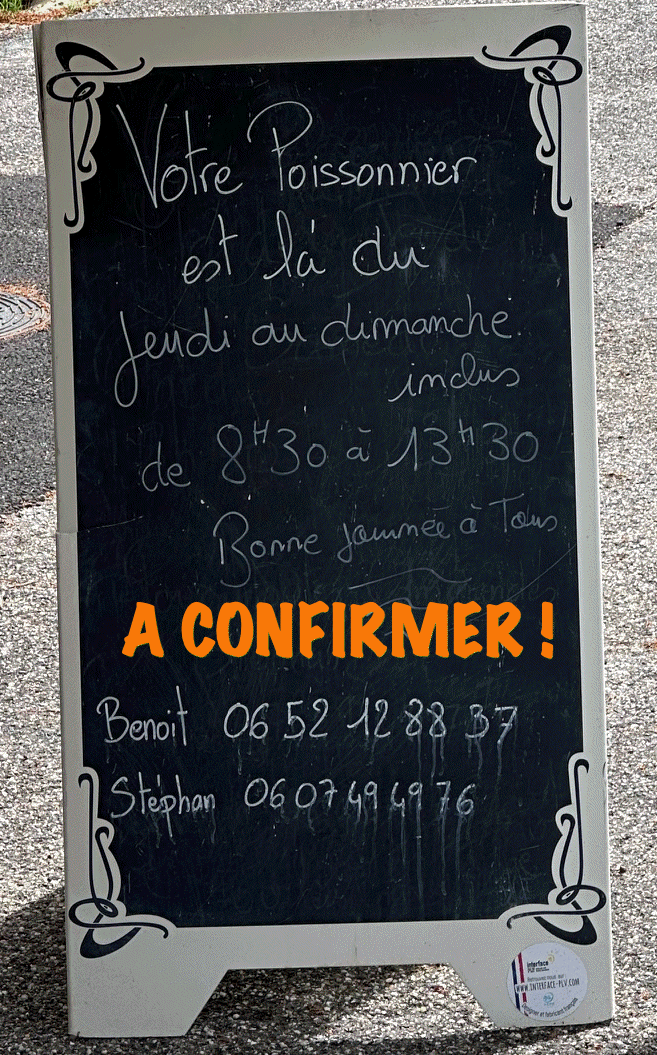 Votre Poissonnier
est là du
Jeudi au dimanche
inclus
de 8H30 à 13H30
Bonne journée à Tous
A CONFIRMER !
Benoit 06 52 12 88 37
Stéphan 06 07 49 49 76
interface
PLV
Retrouvez-nous sur :
WWW.INTERFACE-PLV.COM
Designer et fabricant français